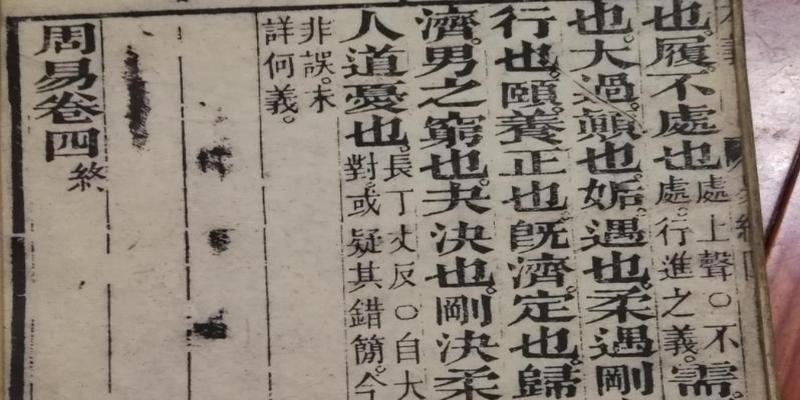 也。履。不處也。處上聲○不處。行進之義。需。
也。大過。顛也。姤。遇也。柔遇剛
行也。頤。養正也。旣濟。定也。歸
濟。男之窮也。夬。決也。剛決柔
人道憂也。長丁丈反○自大
對。或疑其錯簡。今
非誤。未
詳何義。
周易卷四終